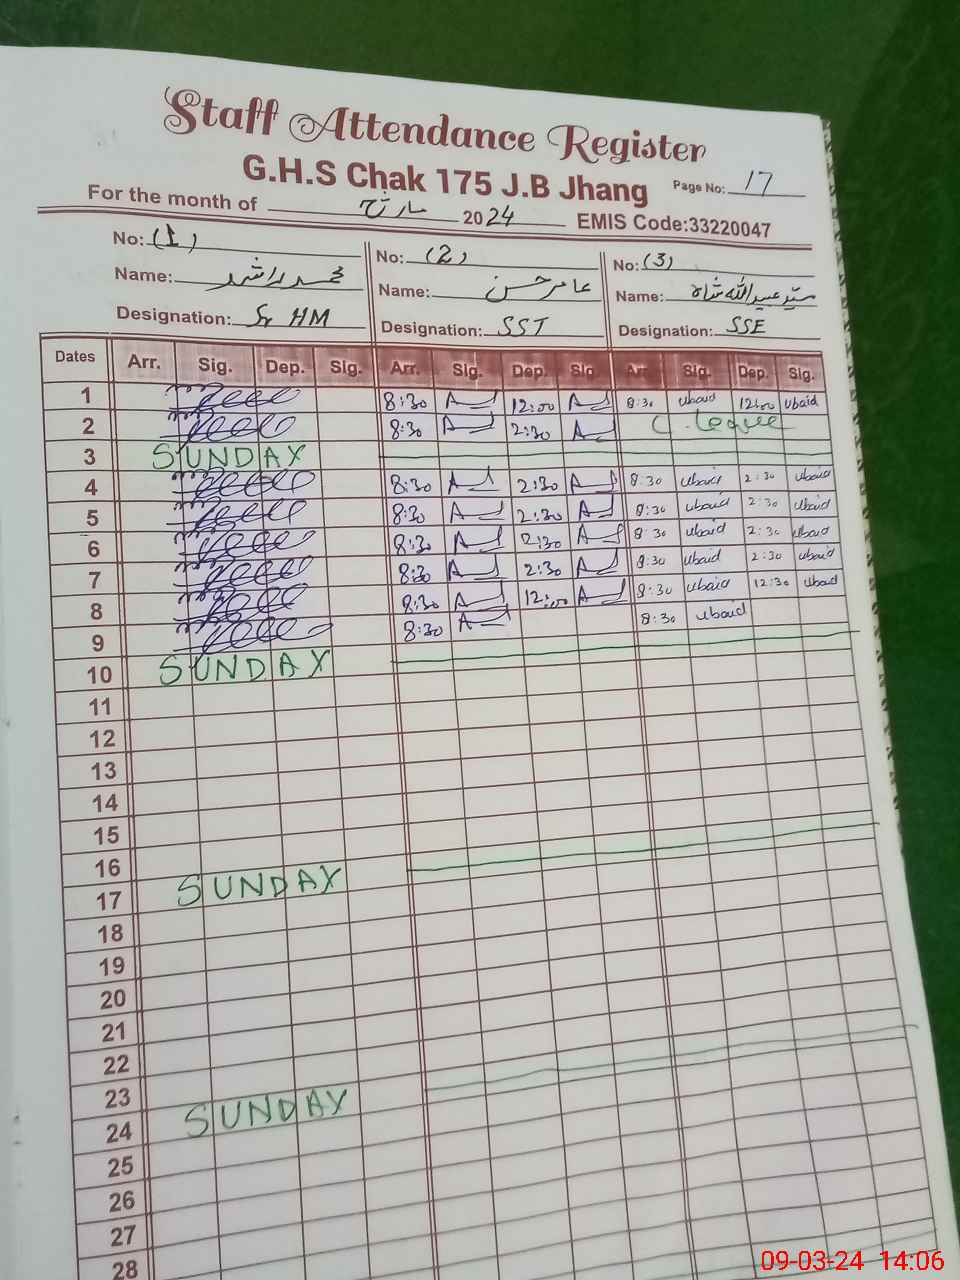 Staff Attendance Register
G.H.S Chak 175 J.B Jhang Page No: 17
For the month of مارچ 2024 EMIS Code:33220047
No: (1) No: (2) No: (3)
Name: محمد راشد Name: عامر حسن Name: سید عبید اللہ شاہ
Designation: Sr HM Designation: SST Designation: SSE
Dates Arr. Sig. Dep. Sig. Arr. Sig. Dep. Sig. Arr. Sig. Dep. Sig.
1 8:30 12:00 8:30 ubaid 12:00 ubaid
2 8:30 2:30 C. Leave
3 SUNDAY
4 8:30 2:30 8:30 ubaid 2:30 ubaid
5 8:30 2:30 8:30 ubaid 2:30 ubaid
6 8:30 2:30 8:30 ubaid 2:30 ubaid
7 8:30 2:30 8:30 ubaid 2:30 ubaid
8 8:30 12:00 8:30 ubaid 12:30 ubaid
9 8:30 8:30 ubaid
10 SUNDAY
11
12
13
14
15
16
17 SUNDAY
18
19
20
21
22
23
24 SUNDAY
25
26
27
28
09-03-24 14:06